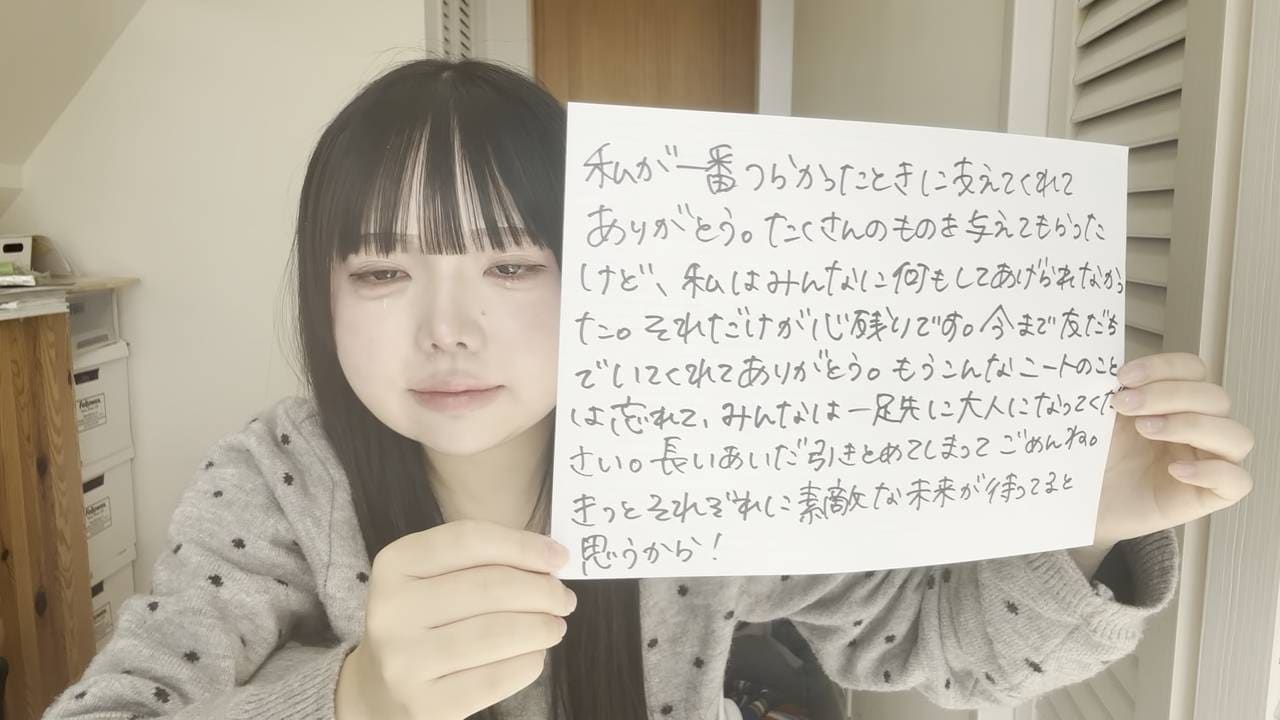 私が一番つらかったときに支えてくれて
ありがとう。たくさんのものを与えてもらった
けど、私はみんなに何もしてあげられなかっ
た。それだけが心残りです。今まで友だち
でいてくれてありがとう。もうこんなニートのこと
は忘れて、みんなは一足先に大人になってくだ
さい。長いあいだ引きとめてしまってごめんね。
きっとそれぞれに素敵な未来が待ってると
思うから!
Fellowes
Fellowes